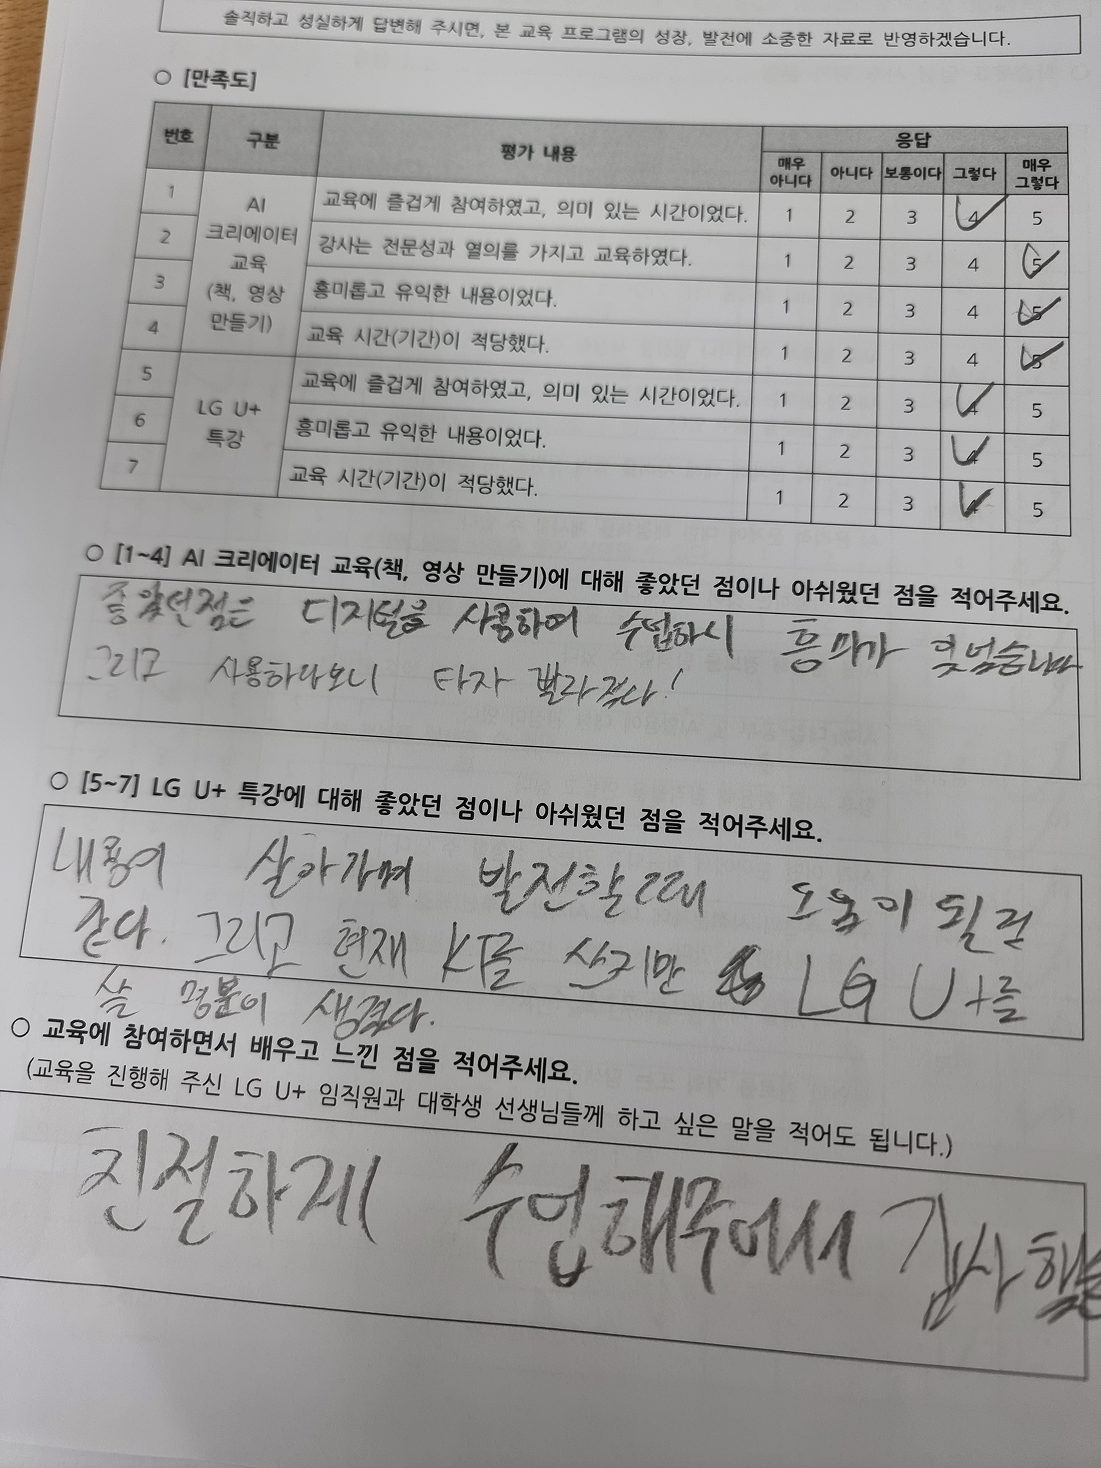 솔직하고 성실하게 답변해 주시면, 본 교육 프로그램의 성장, 발전에 소중한 자료로 반영하겠습니다.
○ [만족도]
번호 구분 평가 내용 응답
매우 아니다 아니다 보통이다 그렇다 매우 그렇다
AI 크리에이터 교육 (책, 영상 만들기)
1 교육에 즐겁게 참여하였고, 의미 있는 시간이었다. 1 2 3 4 5
2 강사는 전문성과 열의를 가지고 교육하였다. 1 2 3 4 5
3 흥미롭고 유익한 내용이었다. 1 2 3 4 5
4 교육 시간(기간)이 적당했다. 1 2 3 4 5
LG U+ 특강
5 교육에 즐겁게 참여하였고, 의미 있는 시간이었다. 1 2 3 4 5
6 흥미롭고 유익한 내용이었다. 1 2 3 4 5
7 교육 시간(기간)이 적당했다. 1 2 3 4 5
○ [1~4] AI 크리에이터 교육(책, 영상 만들기)에 대해 좋았던 점이나 아쉬웠던 점을 적어주세요.
좋았던점은 디지털을 사용하여 수업하니 흥미가
그리고 사용하다보니 타자 빨라졌다!
○ [5~7] LG U+ 특강에 대해 좋았던 점이나 아쉬웠던 점을 적어주세요.
내용이 살아가며 발전할때 도움이 될것
같다. 그리고 현재 KT를 쓰지만 LG U+를
살 명분이 생겼다.
○ 교육에 참여하면서 배우고 느낀 점을 적어주세요.
(교육을 진행해 주신 LG U+ 임직원과 대학생 선생님들께 하고 싶은 말을 적어도 됩니다.)
친절하게 수업해주어서